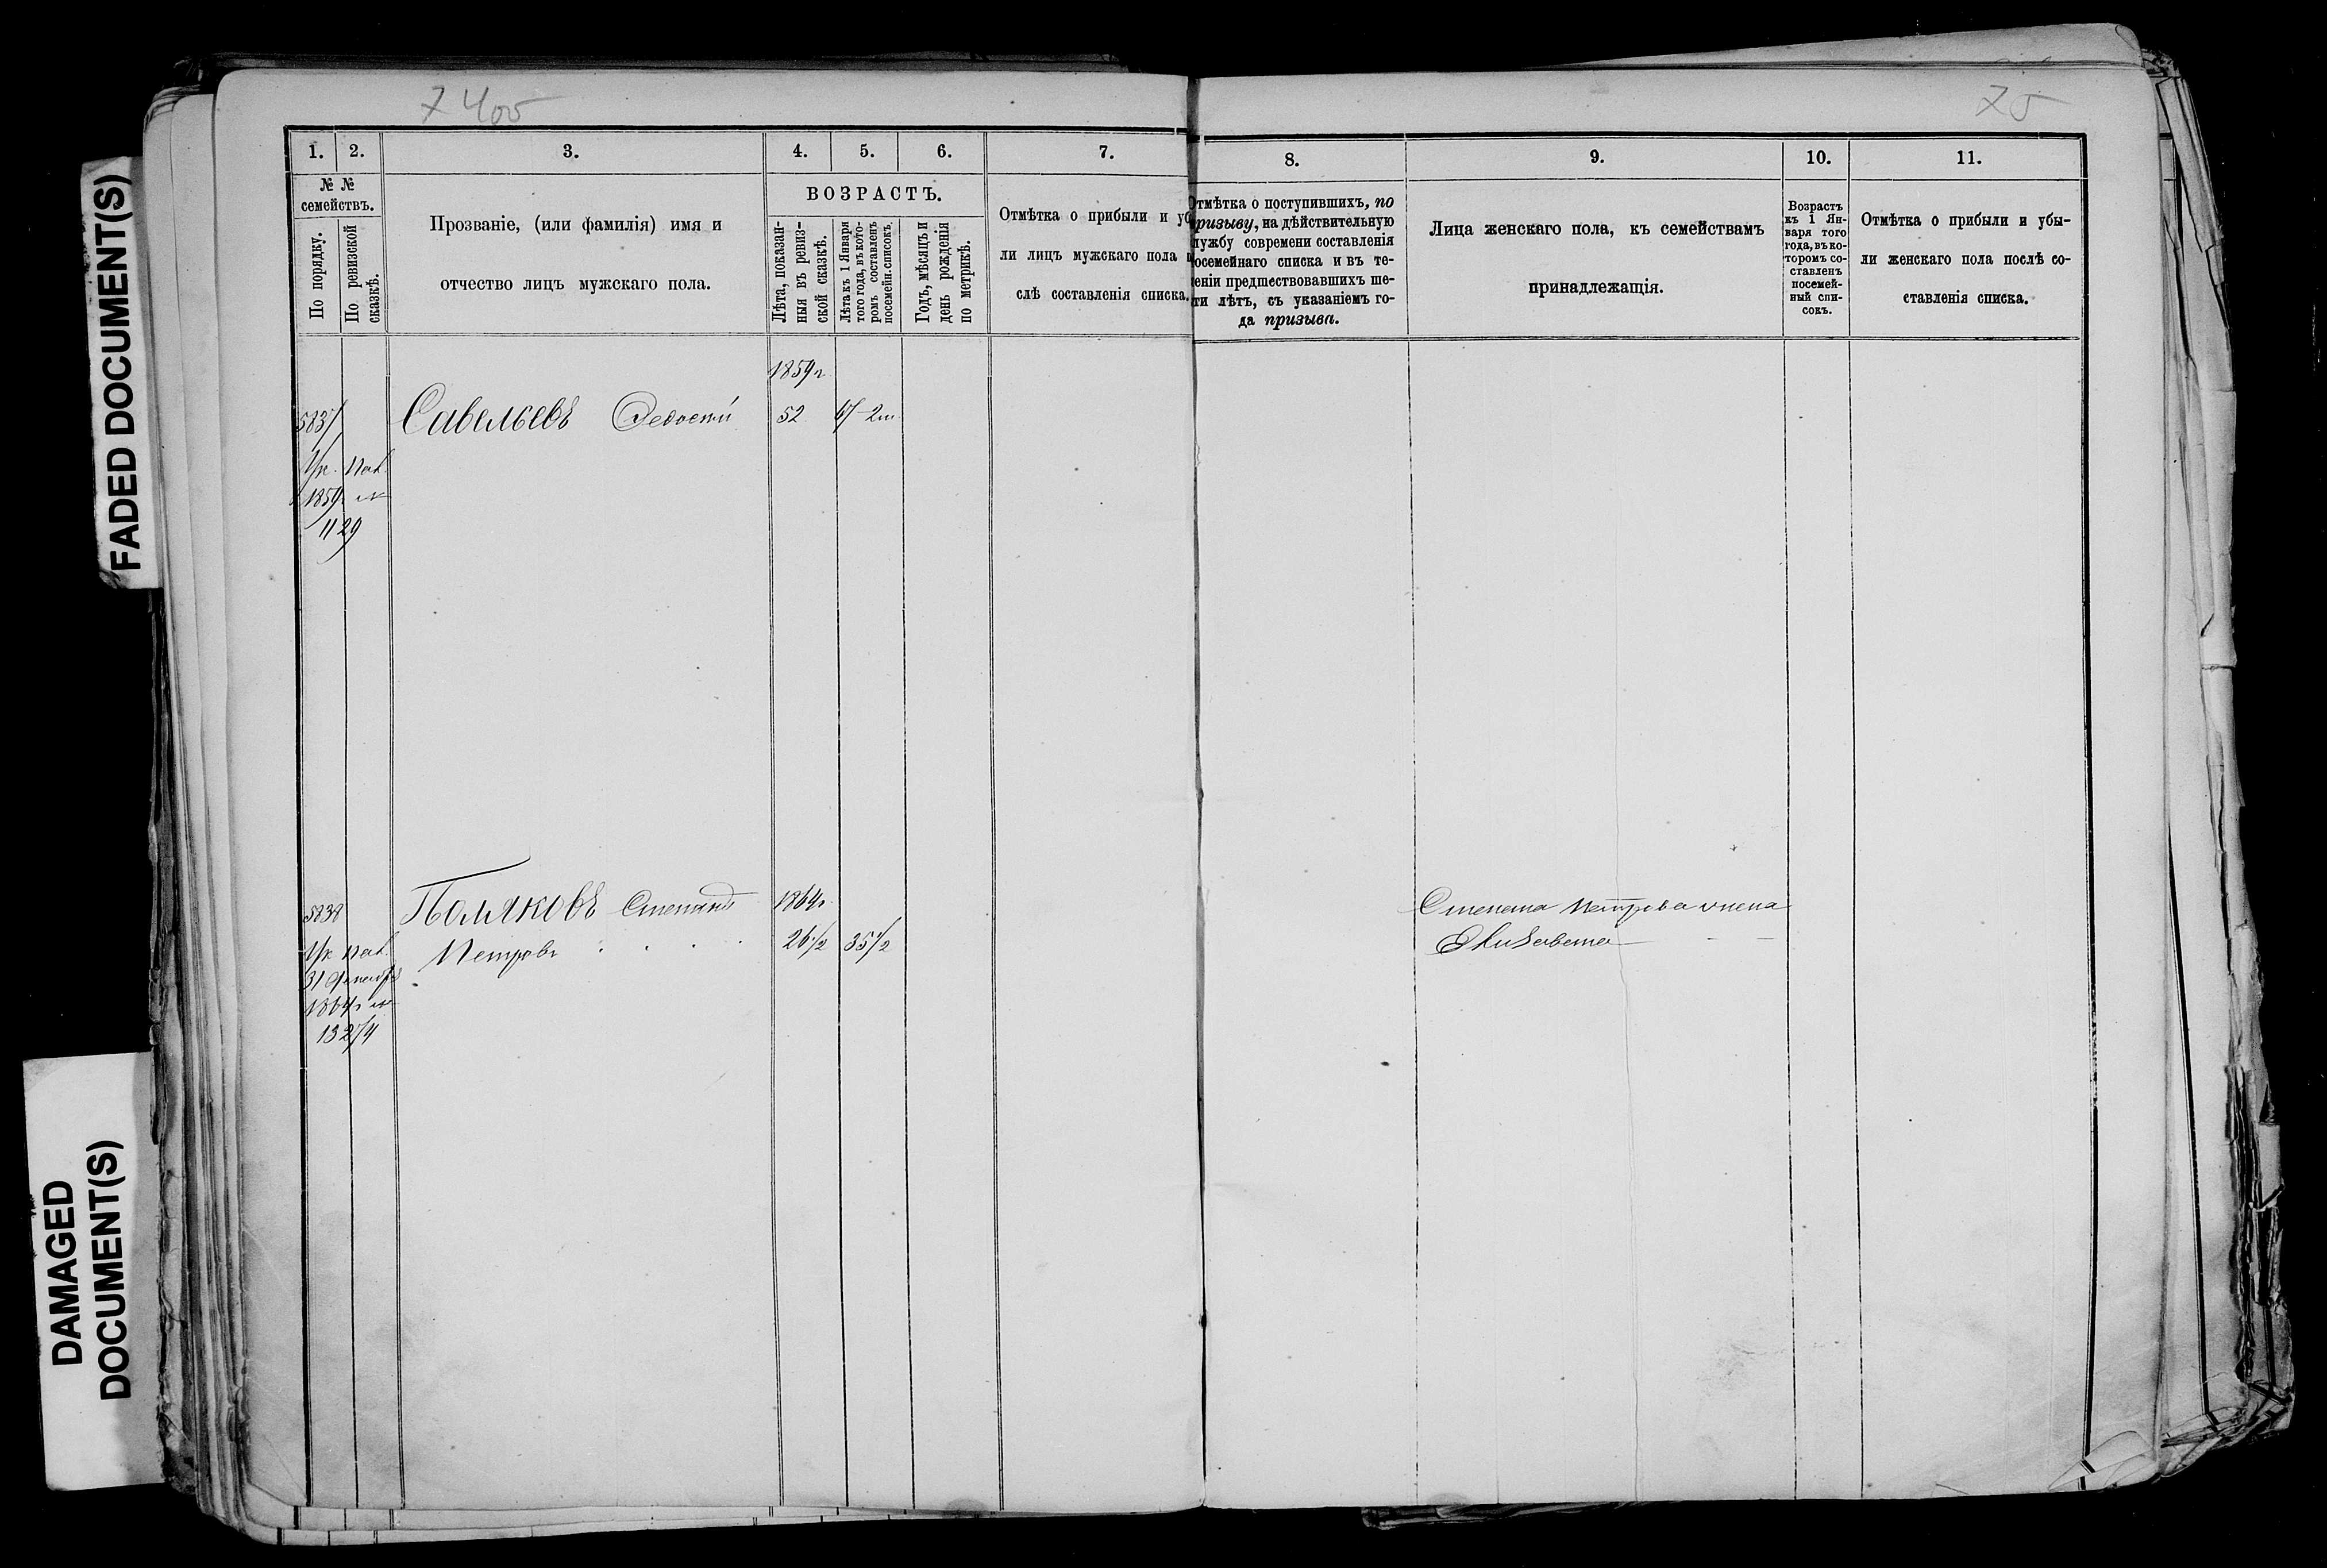 7 405
75
FADED DOCUMENT(S)
DAMAGED
DOCUMENT(S)
1. 2. 3. 4. 5. 6. 7.
№ №
семействъ.
По порядку.
По ревизской
сказкѣ.
Прозваніе, (или фамилія) имя и
отчество лицъ мужскаго пола.
ВОЗРАСТЪ.
Лѣта, показан-
ныя въ ревиз-
ской сказкѣ.
Лѣта къ 1 Января
того года, въ кото-
ромъ составленъ
посемейн. списокъ.
Годъ, мѣсяцъ и
день рожденія
по метрикѣ.
Отмѣтка о прибыли и уб
ли лицъ мужскаго пола п
слѣ составленія списка.
8. 9. 10. 11.
Отмѣтка о поступившихъ, по
призыву, на дѣйствительную
лужбу современи составленія
осемейнаго списка и въ те-
еніи предшествовавшихъ ше-
ти лѣтъ, съ указаніемъ го-
да призыва.
Лица женскаго пола, къ семействамъ
принадлежащія.
Возрастъ
къ 1 Ян-
варя того
года, въ ко-
торомъ со-
ставленъ
посемей-
ный спи-
сокъ.
Отмѣтка о прибыли и убы-
ли женскаго пола послѣ со-
ставленія списка.
1859 г
5837 Савельевъ 52
1859 №
1129
5838 Поляковъ Степанъ 1864 г
Петровъ 26 1/2 35 1/2
31 Декабря
1864 г №
13274
Степана Петрова жена
Елизавета